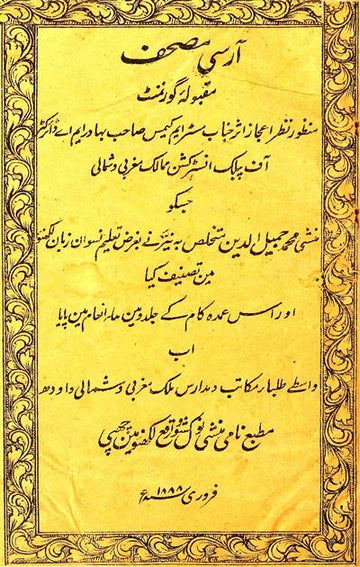 آرسی مصحف
مقبولہ گورنمنٹ
منظور نظر اعجاز اثر جناب مسٹر ایم کیمپس صاحب بہادر ایم اے ڈائرکٹر
آف پبلک انسٹرکشن ممالک مغربی و شمالی
جسکو
منشی محمد جمیل الدین متخلص بہ نیر نے بغرض تعلیم نسوان زبان لکھنؤ
مین تصنیف کیا
اور اس عمدہ کام کے جلدو مین صلہ انعام مین پایا
اب
واسطے طلبا، مکاتب و مدارس ملک مغربی و شمالی و اودھ
مطبع نامی منشی نولکشور واقع لکھنؤ مین چھپی
فروری ۱۸۸۸ سنہ ع